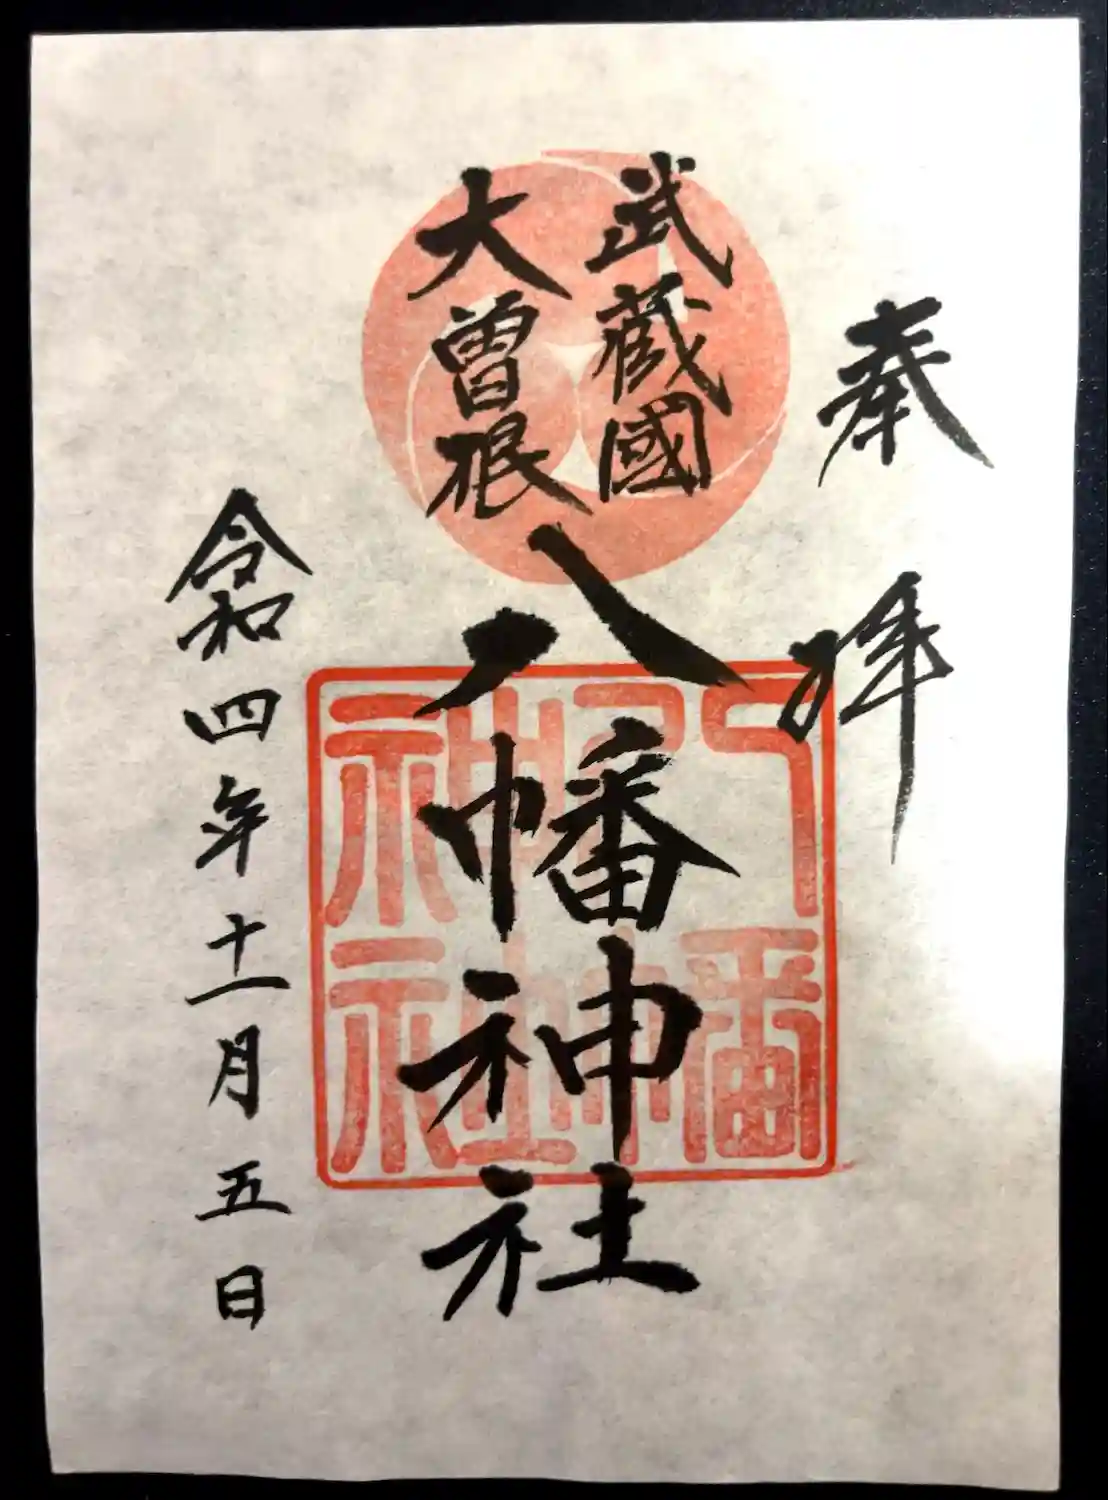 奉拝
武蔵國
大曽根
八幡神社
令和四年十一月五日
八幡神社